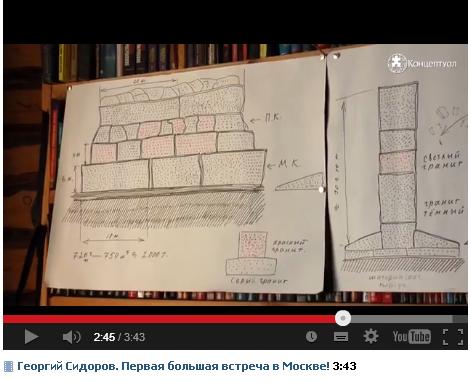 Концептуал
20 м
П.К.
М.К.
10 м
720 м³ — 750 м³ ≈ 2000 т.
красный
гранит
Серый гранит
светлый
гранит
гранит
тёмный
2:45 / 3:43
YouTube
Георгий Сидоров. Первая большая встреча в Москве! 3:43